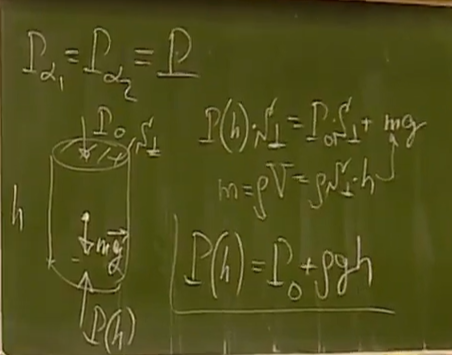 P_{α_1} = P_{α_2} = P
P_0
S_⊥
h
m\vec{g}
P(h)
P(h)·S_⊥ = P_0·S_⊥ + mg
m = ρV = ρS_⊥·h
P(h) = P_0 + ρgh